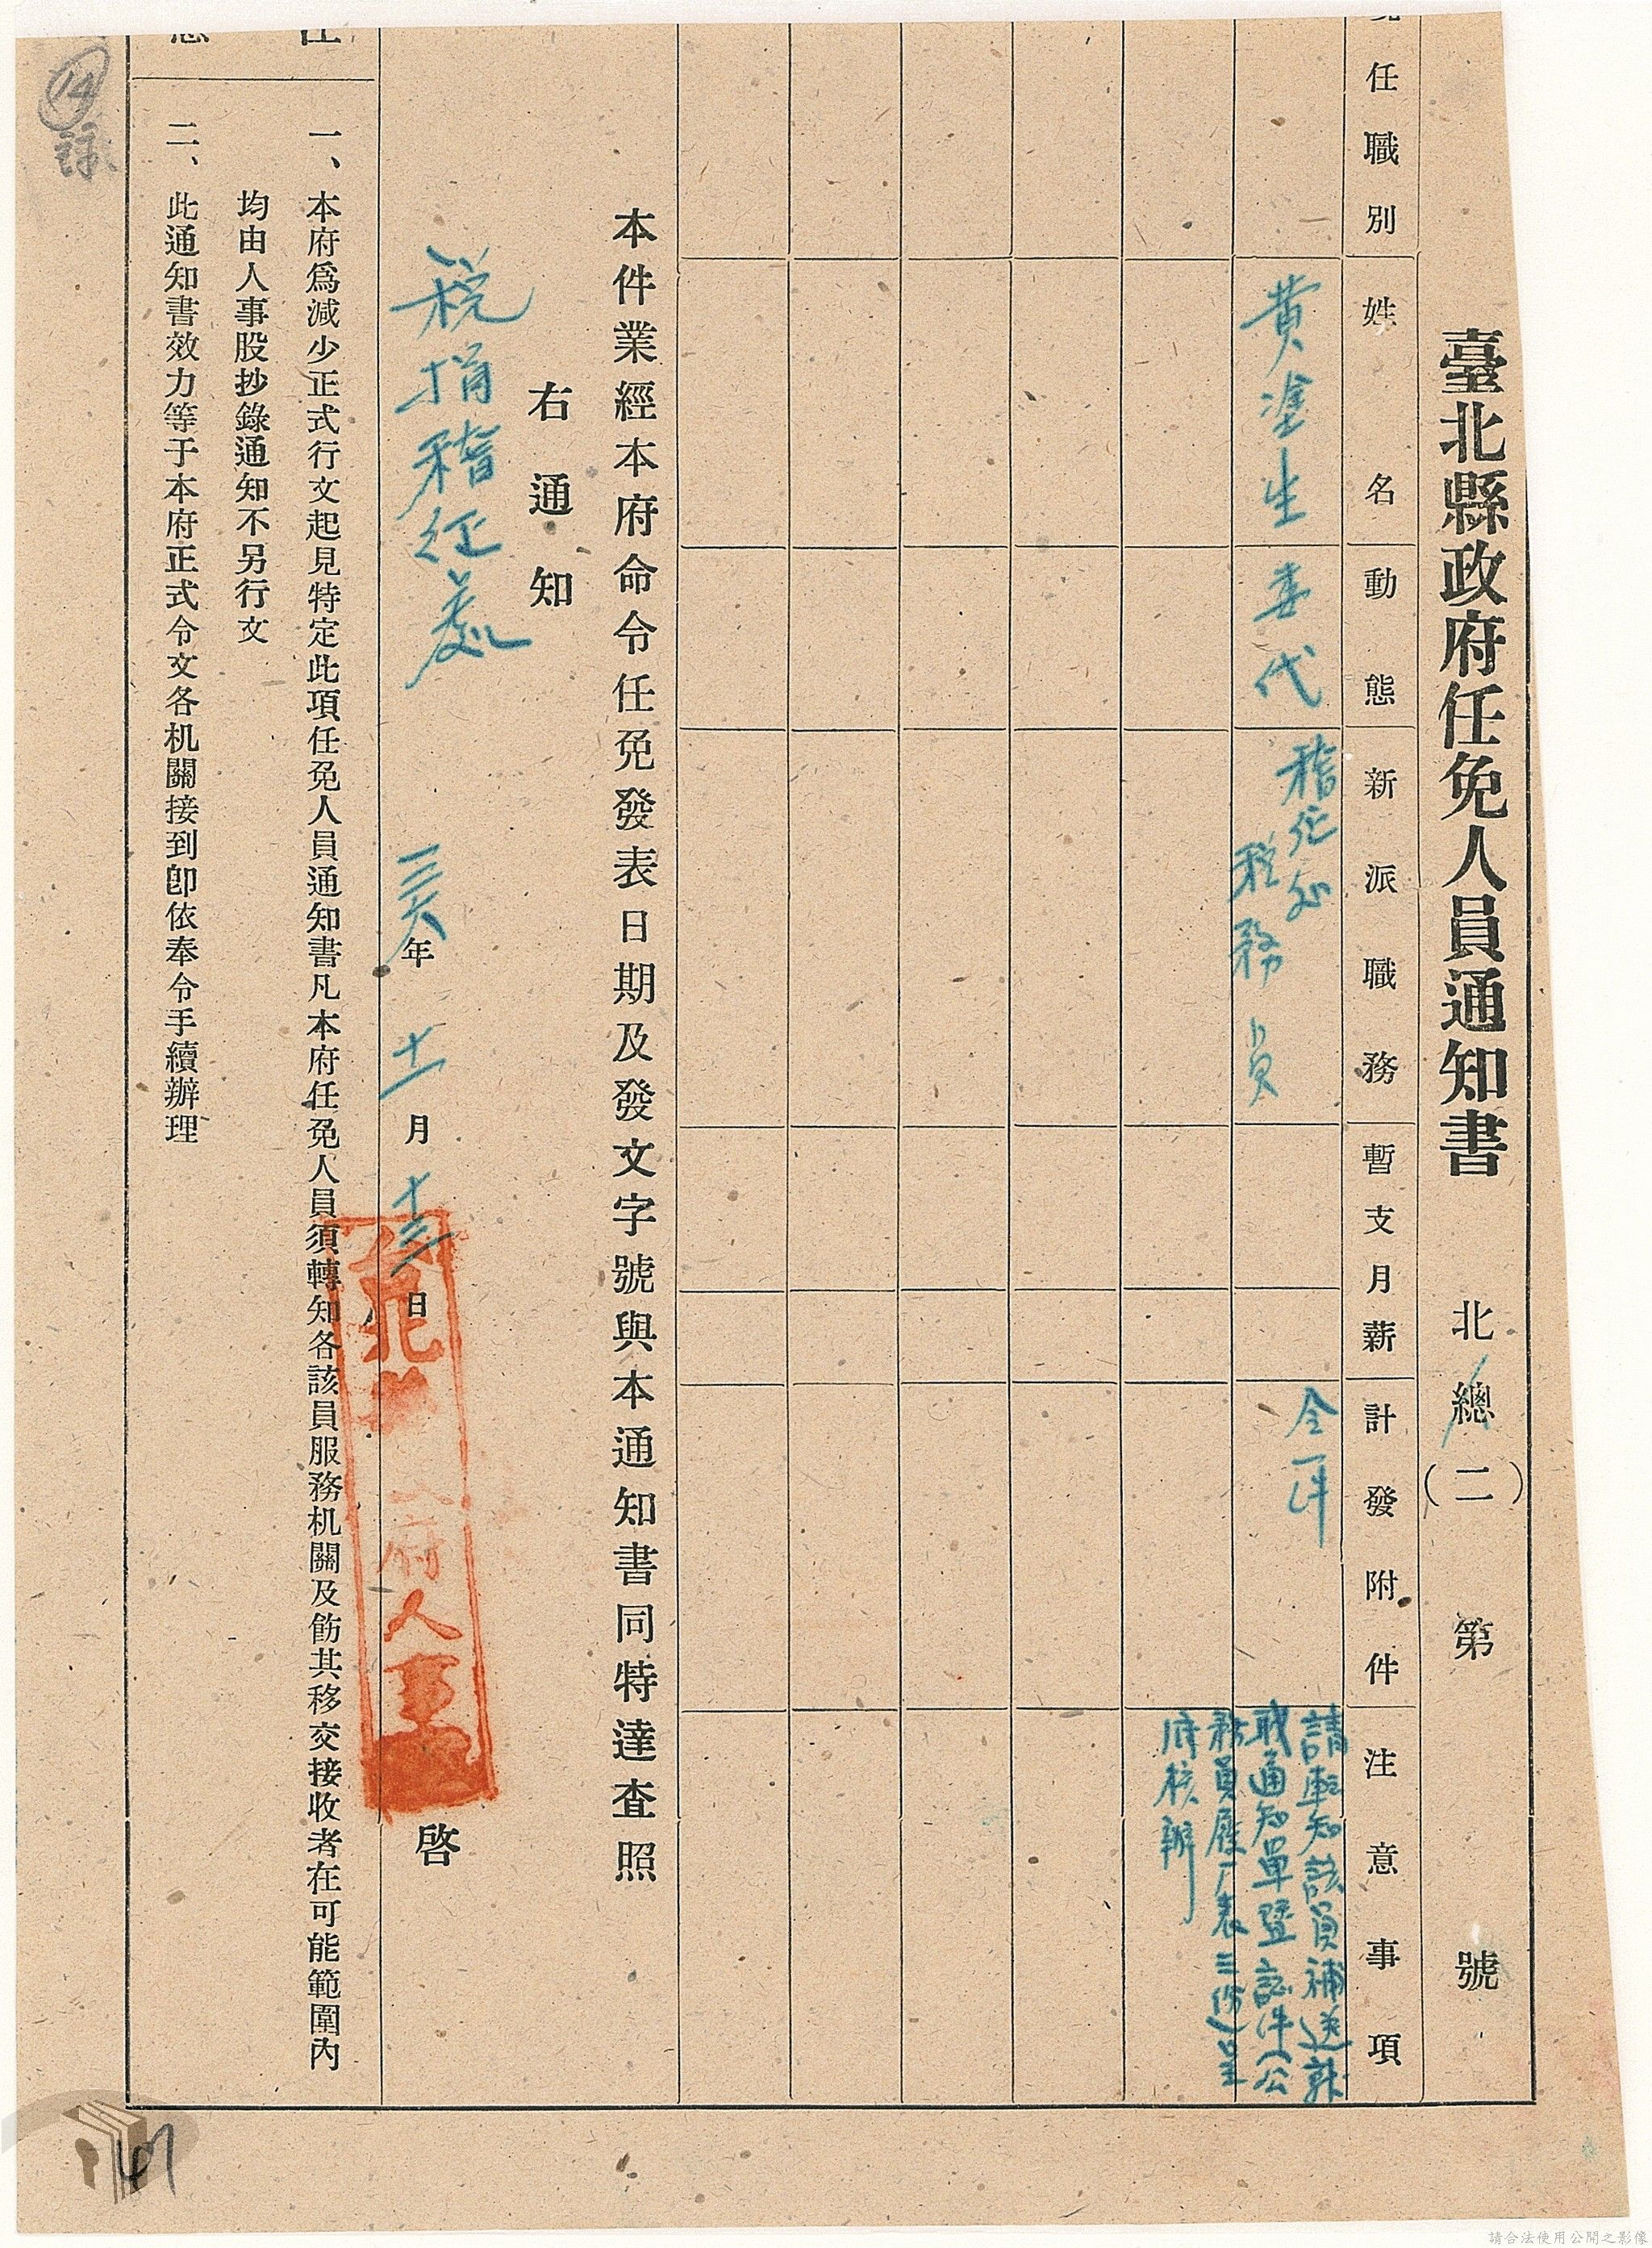 臺北縣政府任免人員通知書　北總(二)第　號
任職別
姓名
動態
新派職務
暫支月薪
計發附件
注意事項
黃塗生
委代
稽征処
稅務員
令一件
請轉知該員補送就
職通知單暨証件公
務員履歷表三份呈
府核辦
本件業經本府命令任免發表日期及發文字號與本通知書同特達查照
右通知
稅捐稽征處
三六年十一月十三日
北
府人事
啓
一、本府爲減少正式行文起見特定此項任免人員通知書凡本府任免人員須轉知各該員服務机關及飭其移交接收者在可能範圍內
均由人事股抄錄通知不另行文
二、此通知書效力等于本府正式令文各机關接到卽依奉令手續辦理
14
47
請合法使用公開之影像